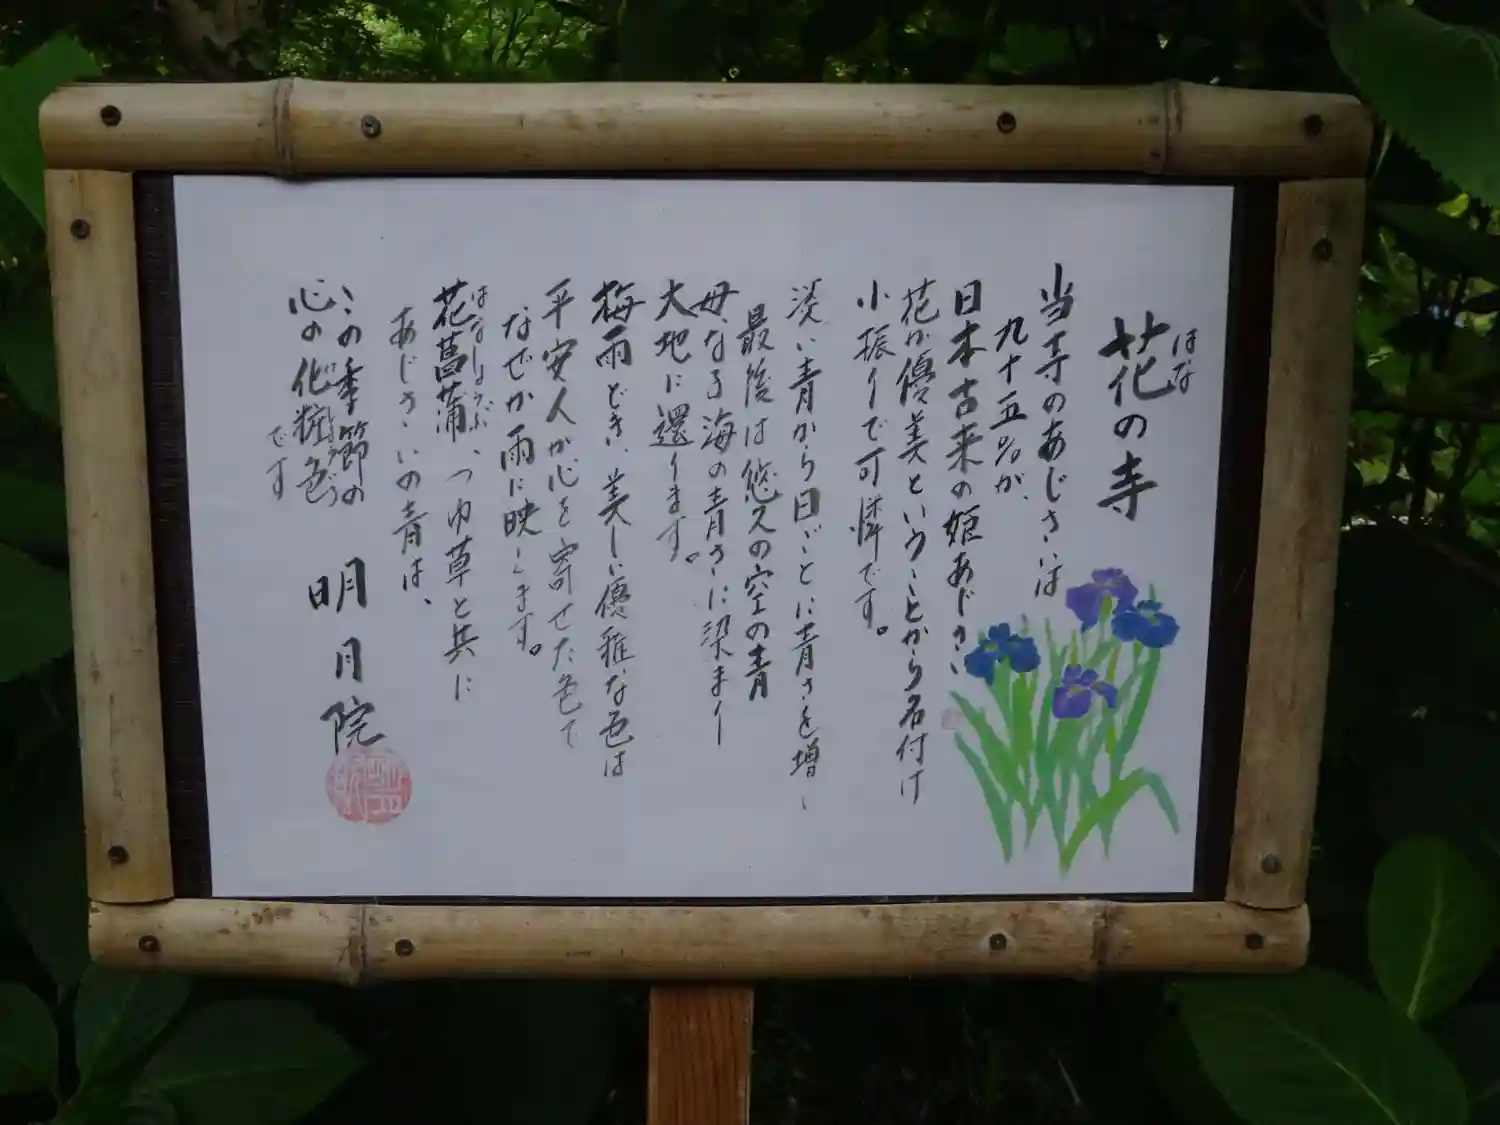 花の寺
はな
当寺のあじさいは
九十五%が、
日本古来の姫あじさい
花が優美ということから名付け
小振りで可憐です。
淡い青から日ごとに青さを増し
最後は悠久の空の青
母なる海の青さに染まり
大地に還ります。
梅雨どき、美しい優雅な色は
平安人が心を寄せた色で
なぜか雨に映えます。
花菖蒲、つゆ草と共に
はなしょうぶ
あじさいの青は、
この季節の
心の化粧色
です
明月院